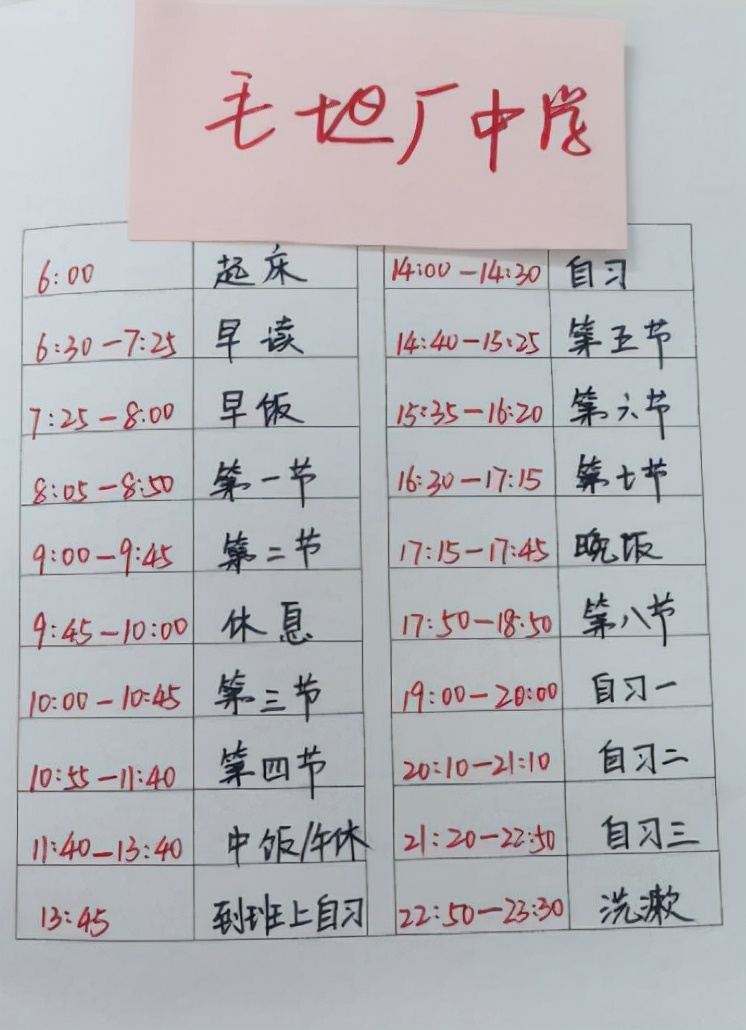 毛坦厂中学
6:00 起床
6:30-7:25 早读
7:25-8:00 早饭
8:05-8:50 第一节
9:00-9:45 第二节
9:45-10:00 休息
10:00-10:45 第三节
10:55-11:40 第四节
11:40-13:40 中饭/午休
13:45 到班上自习
14:00-14:30 自习
14:40-15:25 第五节
15:35-16:20 第六节
16:30-17:15 第七节
17:15-17:45 晚饭
17:50-18:50 第八节
19:00-20:00 自习一
20:10-21:10 自习二
21:20-22:50 自习三
22:50-23:30 洗漱